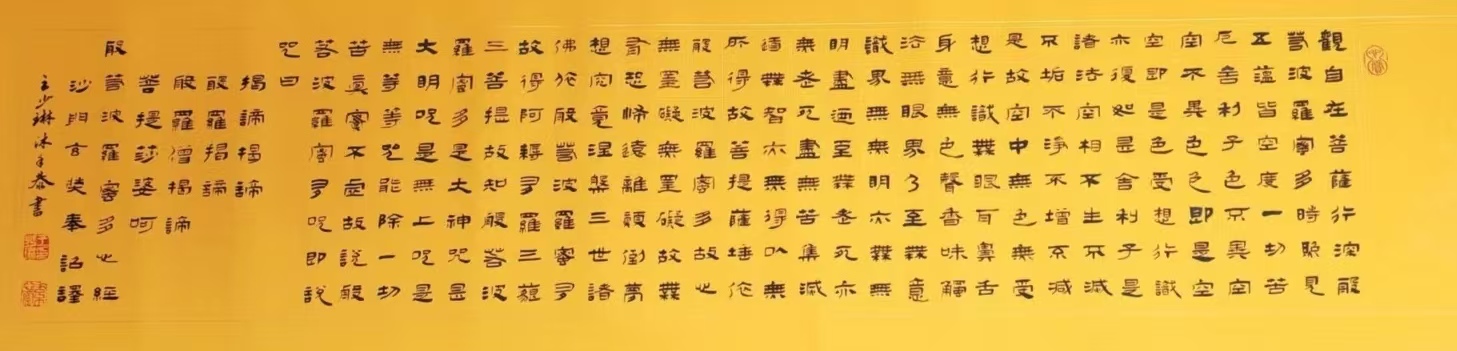 觀自在菩薩行深般
若波羅蜜多時照見
五蘊皆空度一切苦
厄舍利子色不異空
空不異色色即是空
空即是色受想行識
亦復如是舍利子是
諸法空相不生不滅
不垢不淨不增不減
是故空中無色無受
想行識無眼耳鼻舌
身意無色聲香味觸
法無眼界乃至無意
識界無無明亦無無
明盡迺至無老死亦
無老死盡無苦集滅
道無智亦無得以無
所得故菩提薩埵依
般若波羅蜜多故心
無罣礙無罣礙故無
有恐怖遠離顛倒夢
想究竟涅槃三世諸
佛依般若波羅蜜多
故得阿耨多羅三藐
三菩提故知般若波
羅蜜多是大神咒是
大明咒是無上咒是
無等等咒能除一切
苦真實不虛故說般
若波羅蜜多咒即說
咒曰
揭諦揭諦
般羅揭諦
般羅僧揭諦
菩提莎婆呵
般若波羅蜜多心經
沙門玄奘奉詔譯
少琳沐手恭書